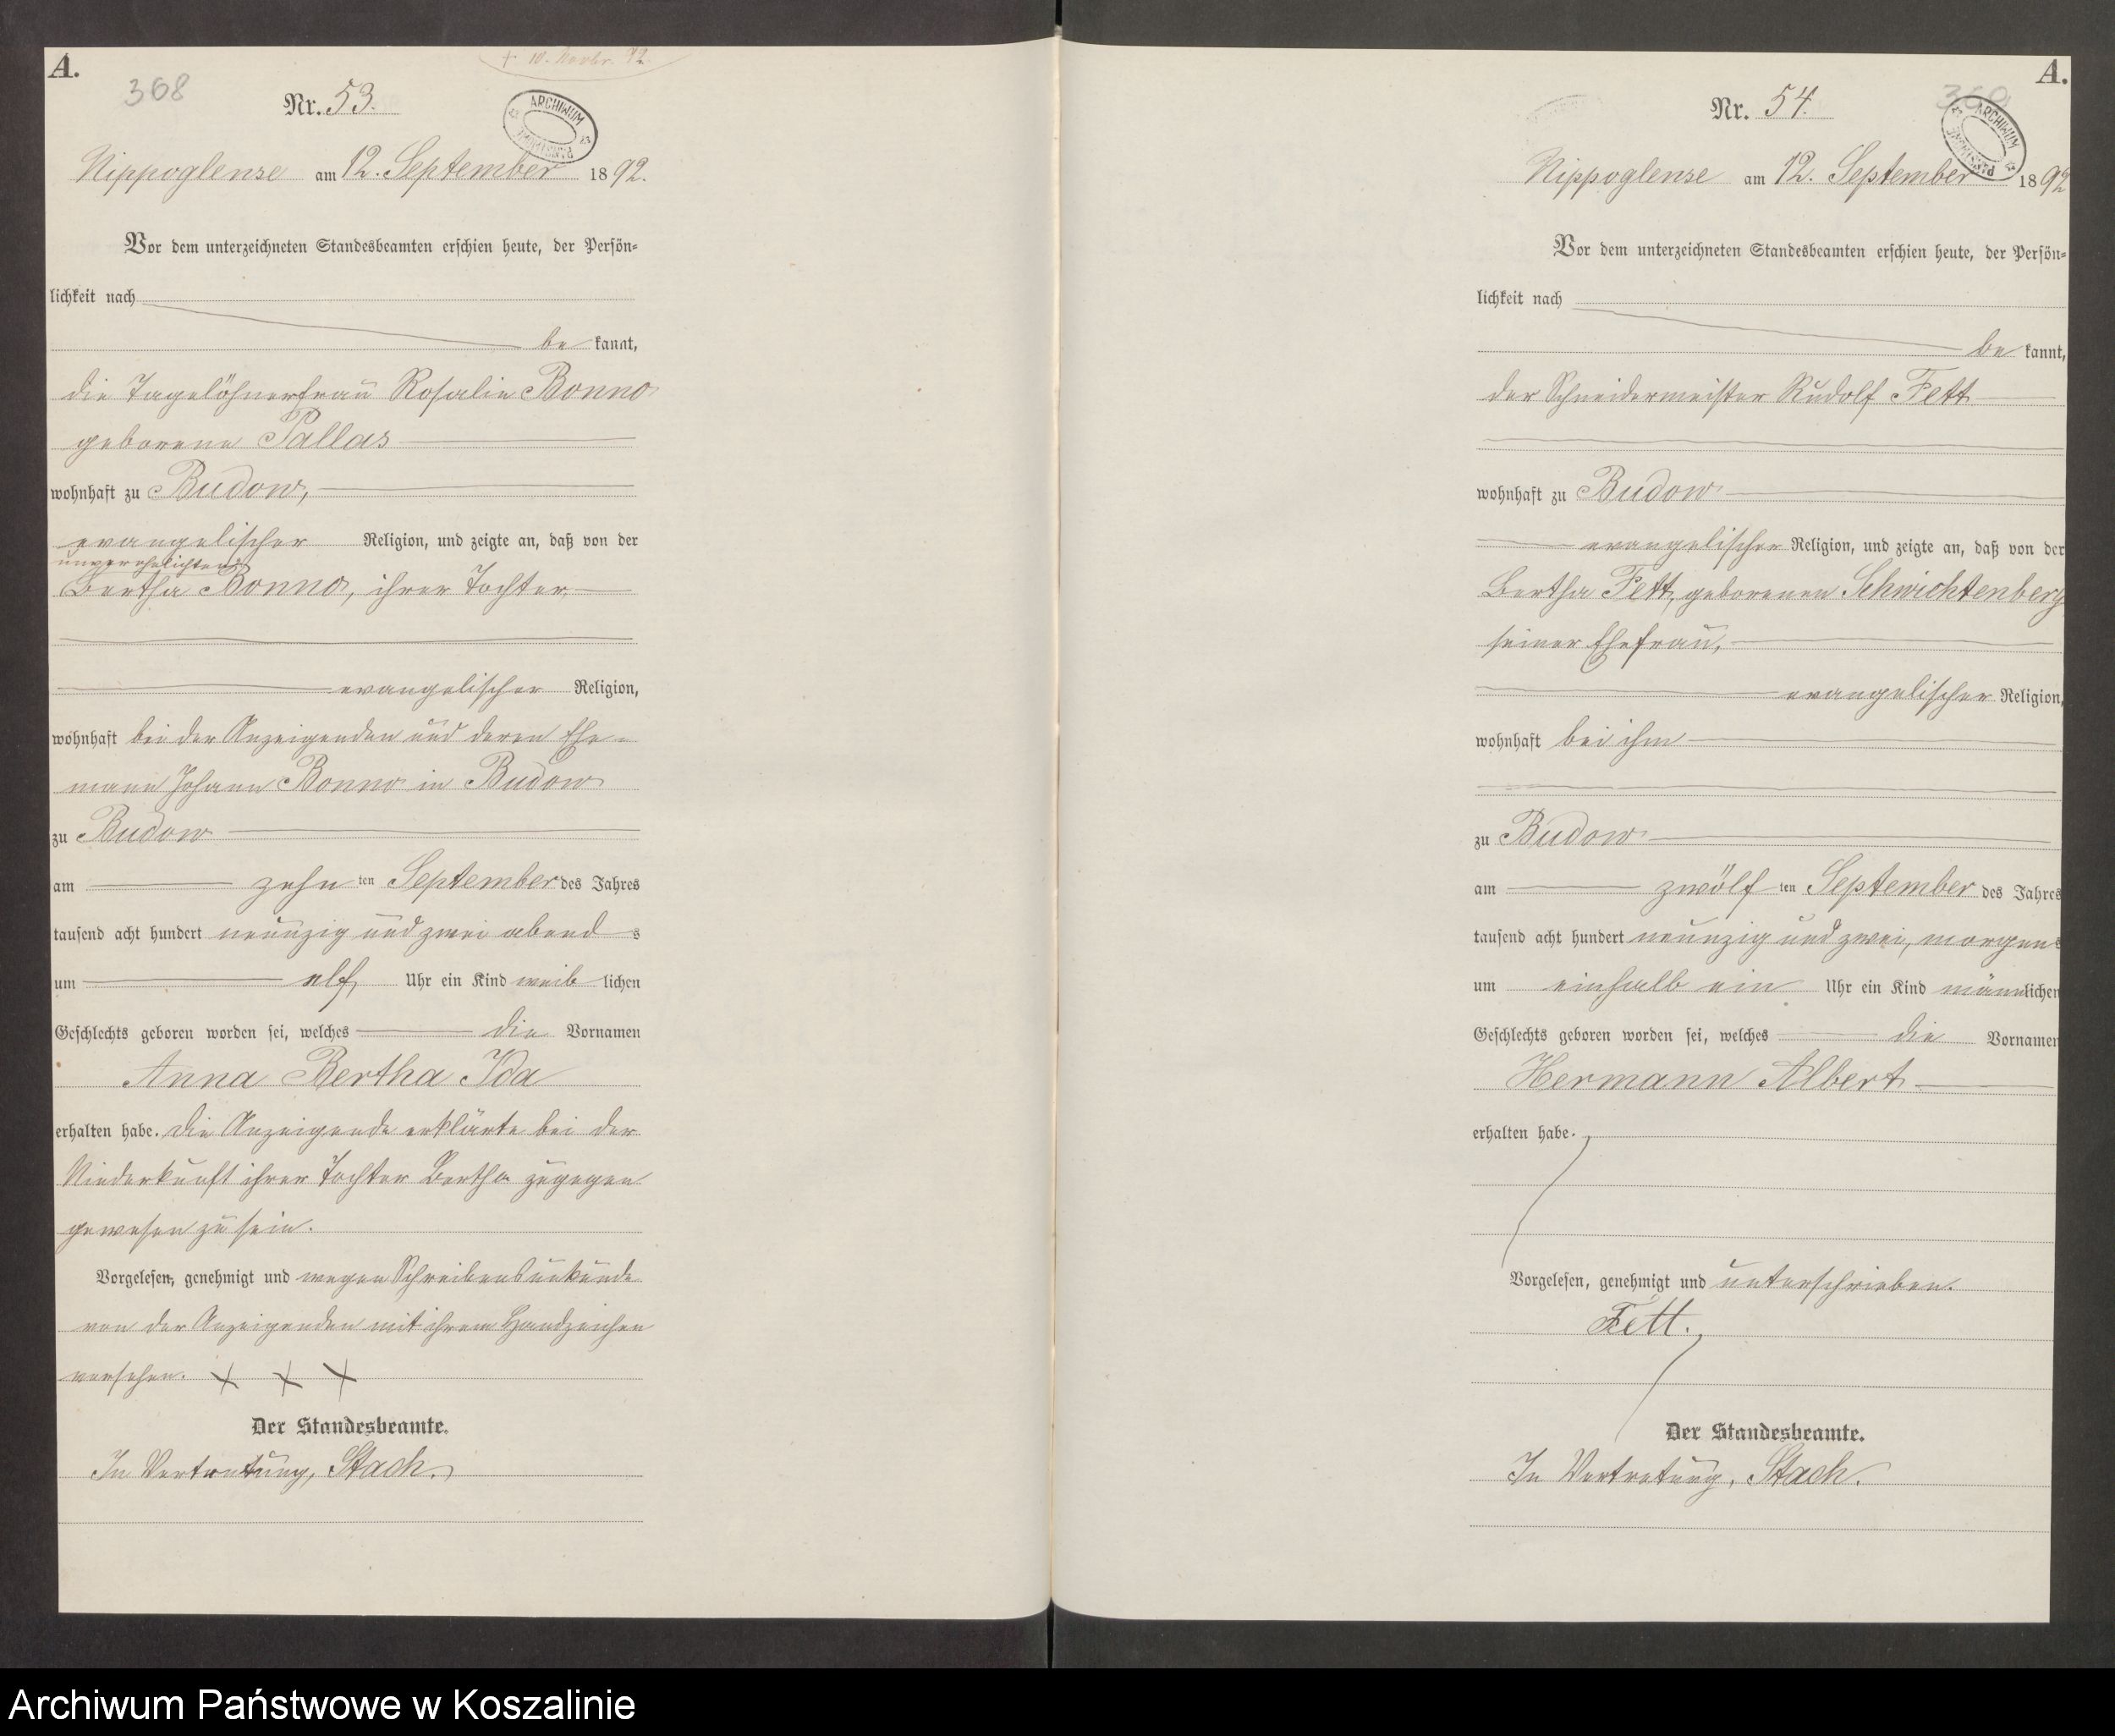 A.
368
+ 10. Novbr. 92.
Nr. 53.
ARCHIWUM
Nippoglense am 12. September 1892.
Vor dem unterzeichneten Standesbeamten erschien heute, der Persön-
lichkeit nach
be kannt,
die Tagelöhnerfrau Rosalie Bonno
geborene Pallas
wohnhaft zu Budow,
evangelischer Religion, und zeigte an, daß von der
unverehelichten
Bertha Bonno, ihrer Tochter
evangelischer Religion,
wohnhaft bei der Anzeigenden und deren Ehe-
mann Johann Bonno in Budow
zu Budow
am zehn ten September des Jahres
tausend acht hundert neunzig und zwei abend s
um elf Uhr ein Kind weib lichen
Geschlechts geboren worden sei, welches die Vornamen
Anna Bertha Ida
erhalten habe. Die Anzeigende erklärte bei der
Niederkunft ihrer Tochter Bertha zugegen
gewesen zu sein.
Vorgelesen, genehmigt und wegen Schreibensunkunde
von der Anzeigenden mit ihrem Handzeichen
versehen. X X X
Der Standesbeamte.
In Vertretung, Stach.
A.
369
Nr. 54.
ARCHIWUM
Nippoglense am 12. September 1892
Vor dem unterzeichneten Standesbeamten erschien heute, der Persön-
lichkeit nach
be kannt,
der Schneidermeister Rudolf Fett
wohnhaft zu Budow
evangelischer Religion, und zeigte an, daß von der
Bertha Fett, geborenen Schwichtenberg
seiner Ehefrau,
evangelischer Religion,
wohnhaft bei ihm
zu Budow
am zwölf ten September des Jahres
tausend acht hundert neunzig und zwei, morgens
um einhalb ein Uhr ein Kind männlichen
Geschlechts geboren worden sei, welches die Vornamen
Hermann Albert
erhalten habe.
Vorgelesen, genehmigt und unterschrieben.
Fett.
Der Standesbeamte.
In Vertretung, Stach.
Archiwum Państwowe w Koszalinie